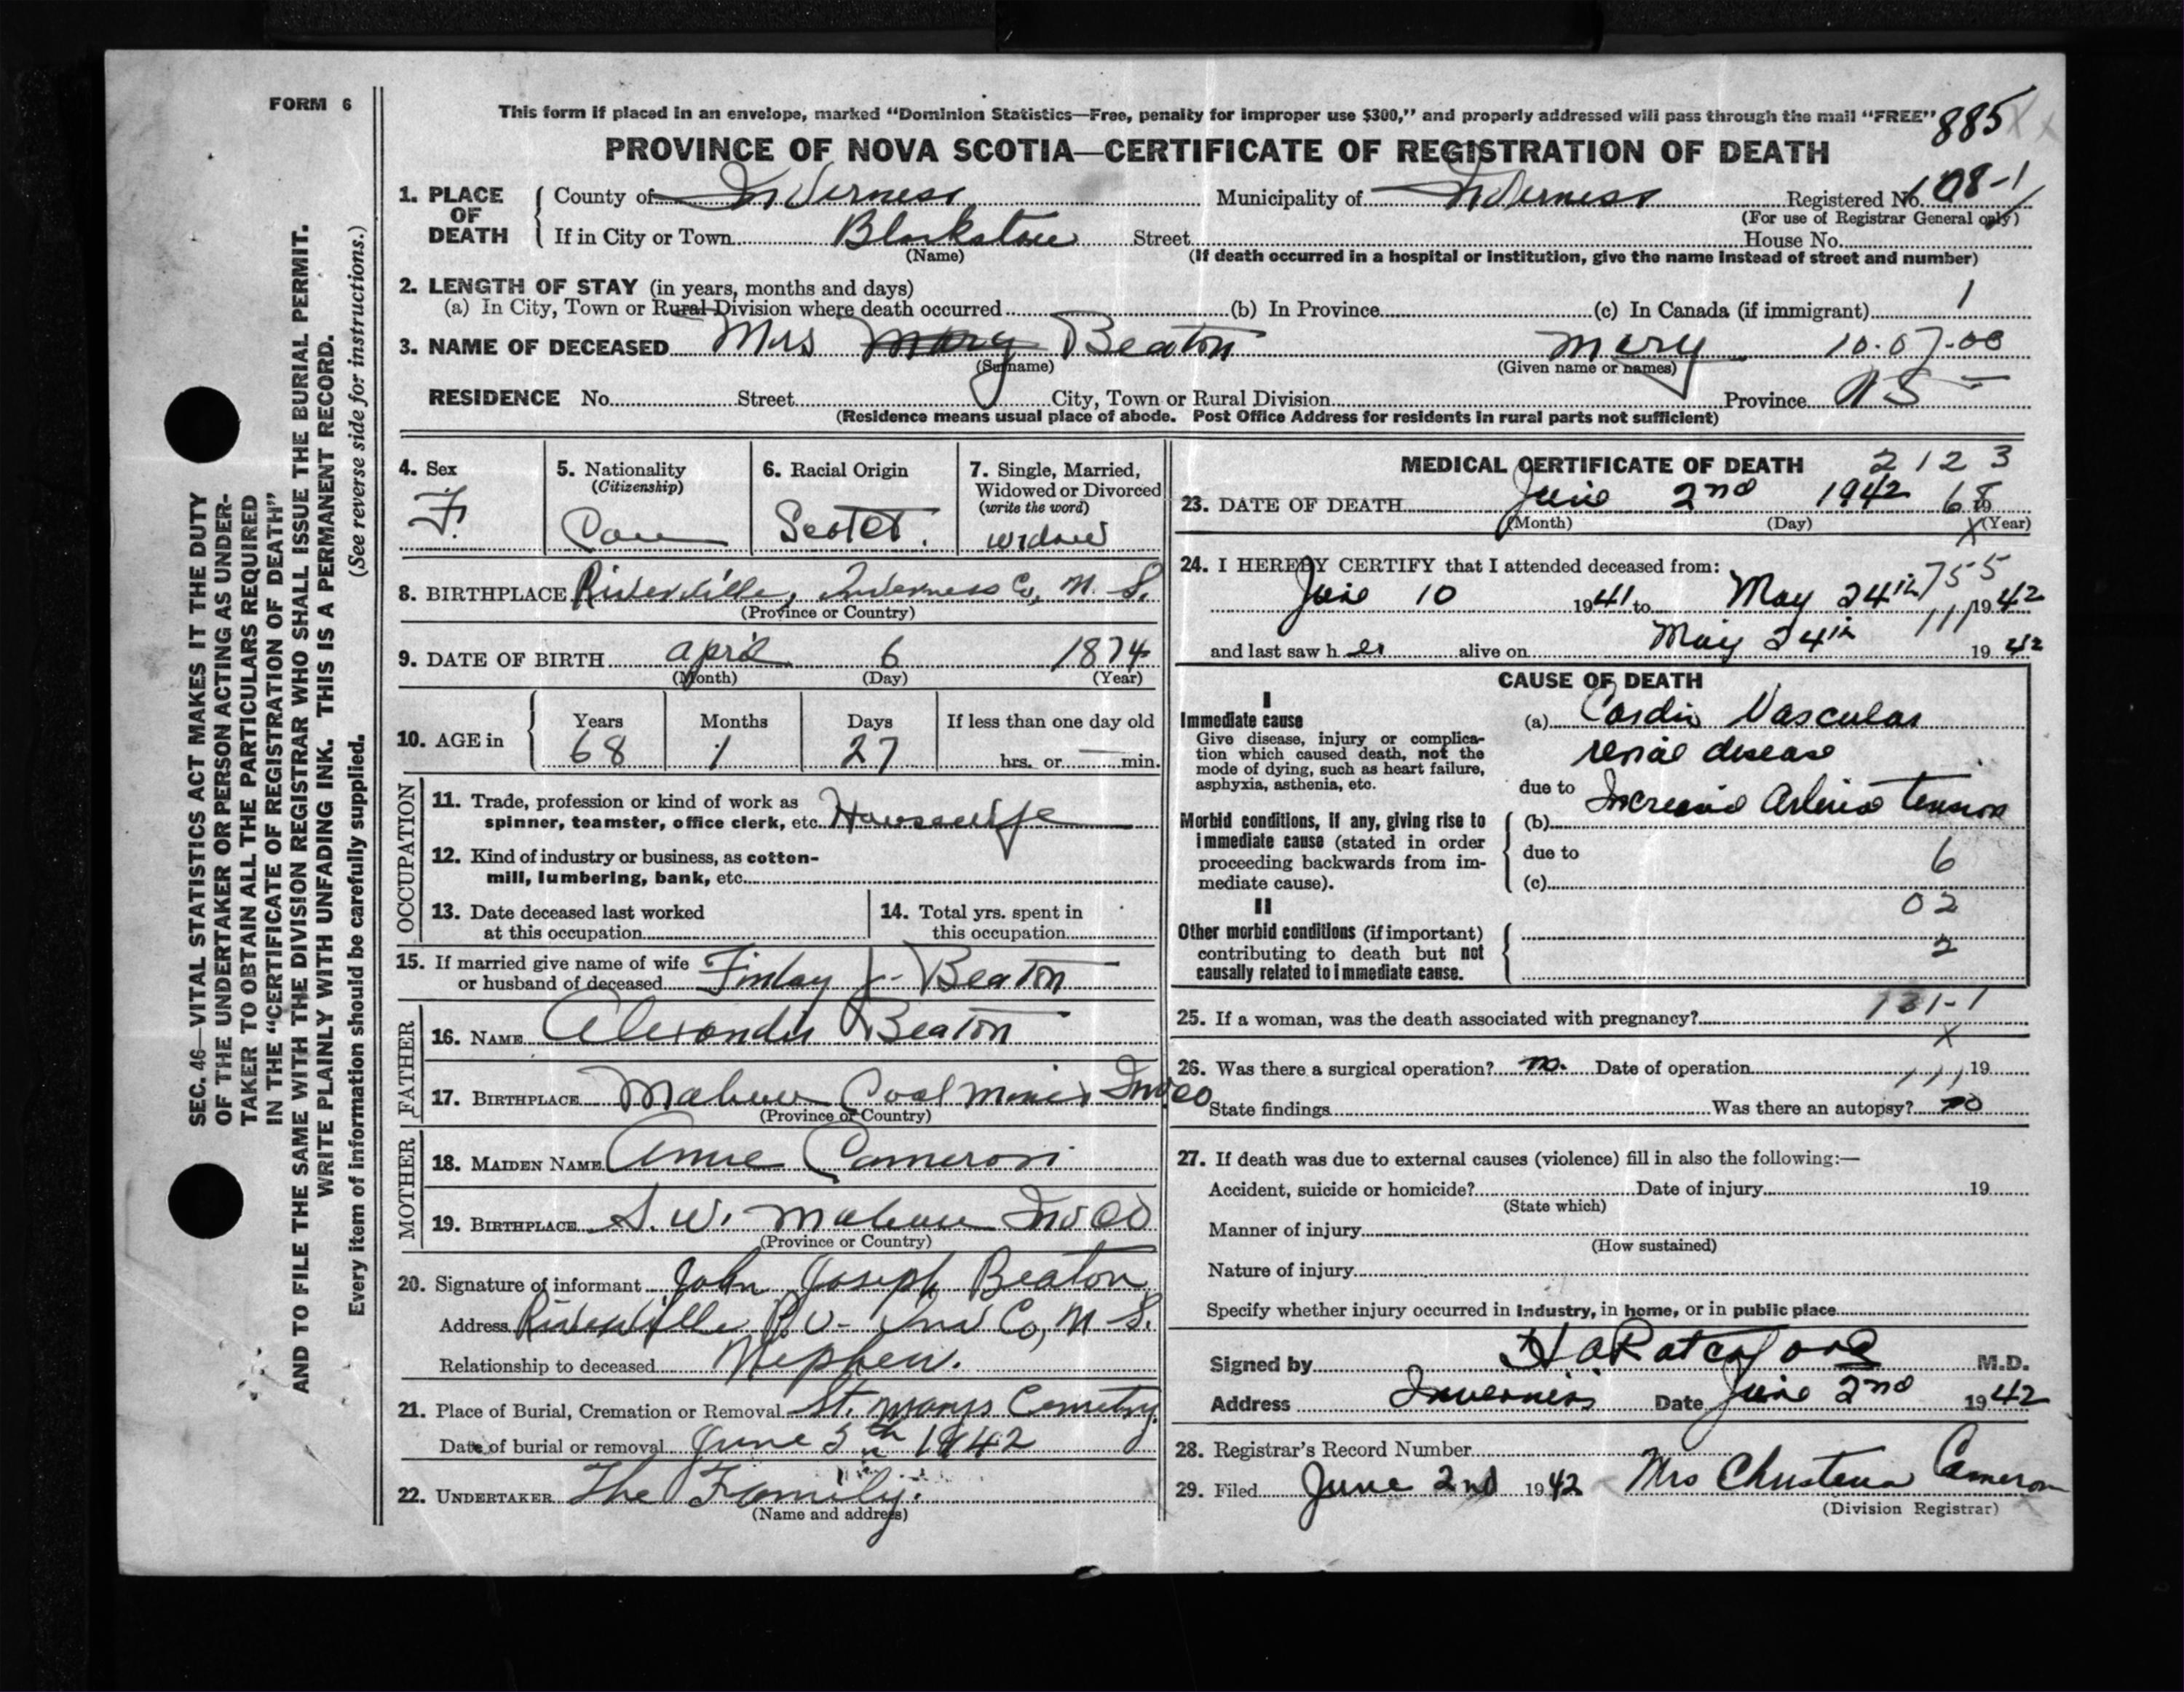 FORM 6
This form if placed in an envelope, marked “Dominion Statistics—Free, penalty for improper use $300,” and properly addressed will pass through the mail “FREE” 885
PROVINCE OF NOVA SCOTIA—CERTIFICATE OF REGISTRATION OF DEATH
1. PLACE OF DEATH County of Inverness Municipality of Inverness Registered No. 108-1
(For use of Registrar General only)
If in City or Town Blackstone Street House No.
(Name) (If death occurred in a hospital or institution, give the name instead of street and number)
2. LENGTH OF STAY (in years, months and days)
(a) In City, Town or Rural Division where death occurred (b) In Province (c) In Canada (if immigrant) 1
3. NAME OF DECEASED Mrs Mary Beaton Mary 10-07-00
(Surname) (Given name or names)
RESIDENCE No. Street City, Town or Rural Division Province NS
(Residence means usual place of abode. Post Office Address for residents in rural parts not sufficient)
4. Sex F.
5. Nationality (Citizenship) Can
6. Racial Origin Scotch.
7. Single, Married, Widowed or Divorced (write the word) widow
8. BIRTHPLACE Riverville, Inverness Co, N. S.
(Province or Country)
9. DATE OF BIRTH April 6 1874
(Month) (Day) (Year)
10. AGE in Years 68 Months 1 Days 27 If less than one day old hrs. or min.
OCCUPATION
11. Trade, profession or kind of work as
spinner, teamster, office clerk, etc. Housewife
12. Kind of industry or business, as cotton-
mill, lumbering, bank, etc.
13. Date deceased last worked
at this occupation
14. Total yrs. spent in
this occupation
15. If married give name of wife
or husband of deceased Finlay J. Beaton
FATHER
16. NAME Alexander Beaton
17. BIRTHPLACE Mabou Coal Mines Inv Co
(Province or Country)
MOTHER
18. MAIDEN NAME Annie Cameron
19. BIRTHPLACE S. W. Mabou Inv Co
(Province or Country)
20. Signature of informant John Joseph Beaton
Address Riverville P.O. Inv Co, N S.
Relationship to deceased Nephew.
21. Place of Burial, Cremation or Removal St. Marys Cemetry
Date of burial or removal June 5th 1942
22. UNDERTAKER The Family.
(Name and address)
MEDICAL CERTIFICATE OF DEATH 2123
23. DATE OF DEATH June 2nd 1942 68 19
(Month) (Day) (Year)
24. I HEREBY CERTIFY that I attended deceased from: 755
June 10 1941 to May 24th 1942
and last saw her alive on May 24th 1942
CAUSE OF DEATH
I
Immediate cause
Give disease, injury or complica-
tion which caused death, not the
mode of dying, such as heart failure,
asphyxia, asthenia, etc.
(a) Cardio Vascular
renal disease
due to Increased Arterial tension
Morbid conditions, if any, giving rise to
immediate cause (stated in order
proceeding backwards from im-
mediate cause).
(b)
due to 6
(c)
02
II
Other morbid conditions (if important)
contributing to death but not
causally related to immediate cause.
2
131-1
25. If a woman, was the death associated with pregnancy? X
26. Was there a surgical operation? no. Date of operation 19
State findings Was there an autopsy? no
27. If death was due to external causes (violence) fill in also the following:—
Accident, suicide or homicide? Date of injury 19
(State which)
Manner of injury
(How sustained)
Nature of injury
Specify whether injury occurred in industry, in home, or in public place
Signed by M.D.
Address Inverness Date June 2nd 1942
28. Registrar's Record Number
29. Filed June 2nd 1942 Mrs Christena Cameron
(Division Registrar)
SEC. 46—VITAL STATISTICS ACT MAKES IT THE DUTY
OF THE UNDERTAKER OR PERSON ACTING AS UNDER-
TAKER TO OBTAIN ALL THE PARTICULARS REQUIRED
IN THE “CERTIFICATE OF REGISTRATION OF DEATH”
AND TO FILE THE SAME WITH THE DIVISION REGISTRAR WHO SHALL ISSUE THE BURIAL PERMIT.
WRITE PLAINLY WITH UNFADING INK. THIS IS A PERMANENT RECORD.
Every item of information should be carefully supplied. (See reverse side for instructions.)